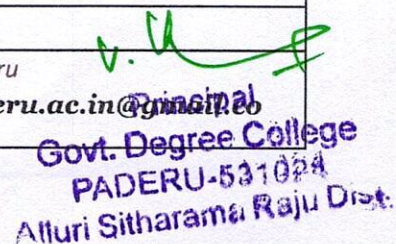 ru
eru.ac.in@gmail.co
Principal
Govt. Degree College
PADERU-531024
Alluri Sitharama Raju Dist.